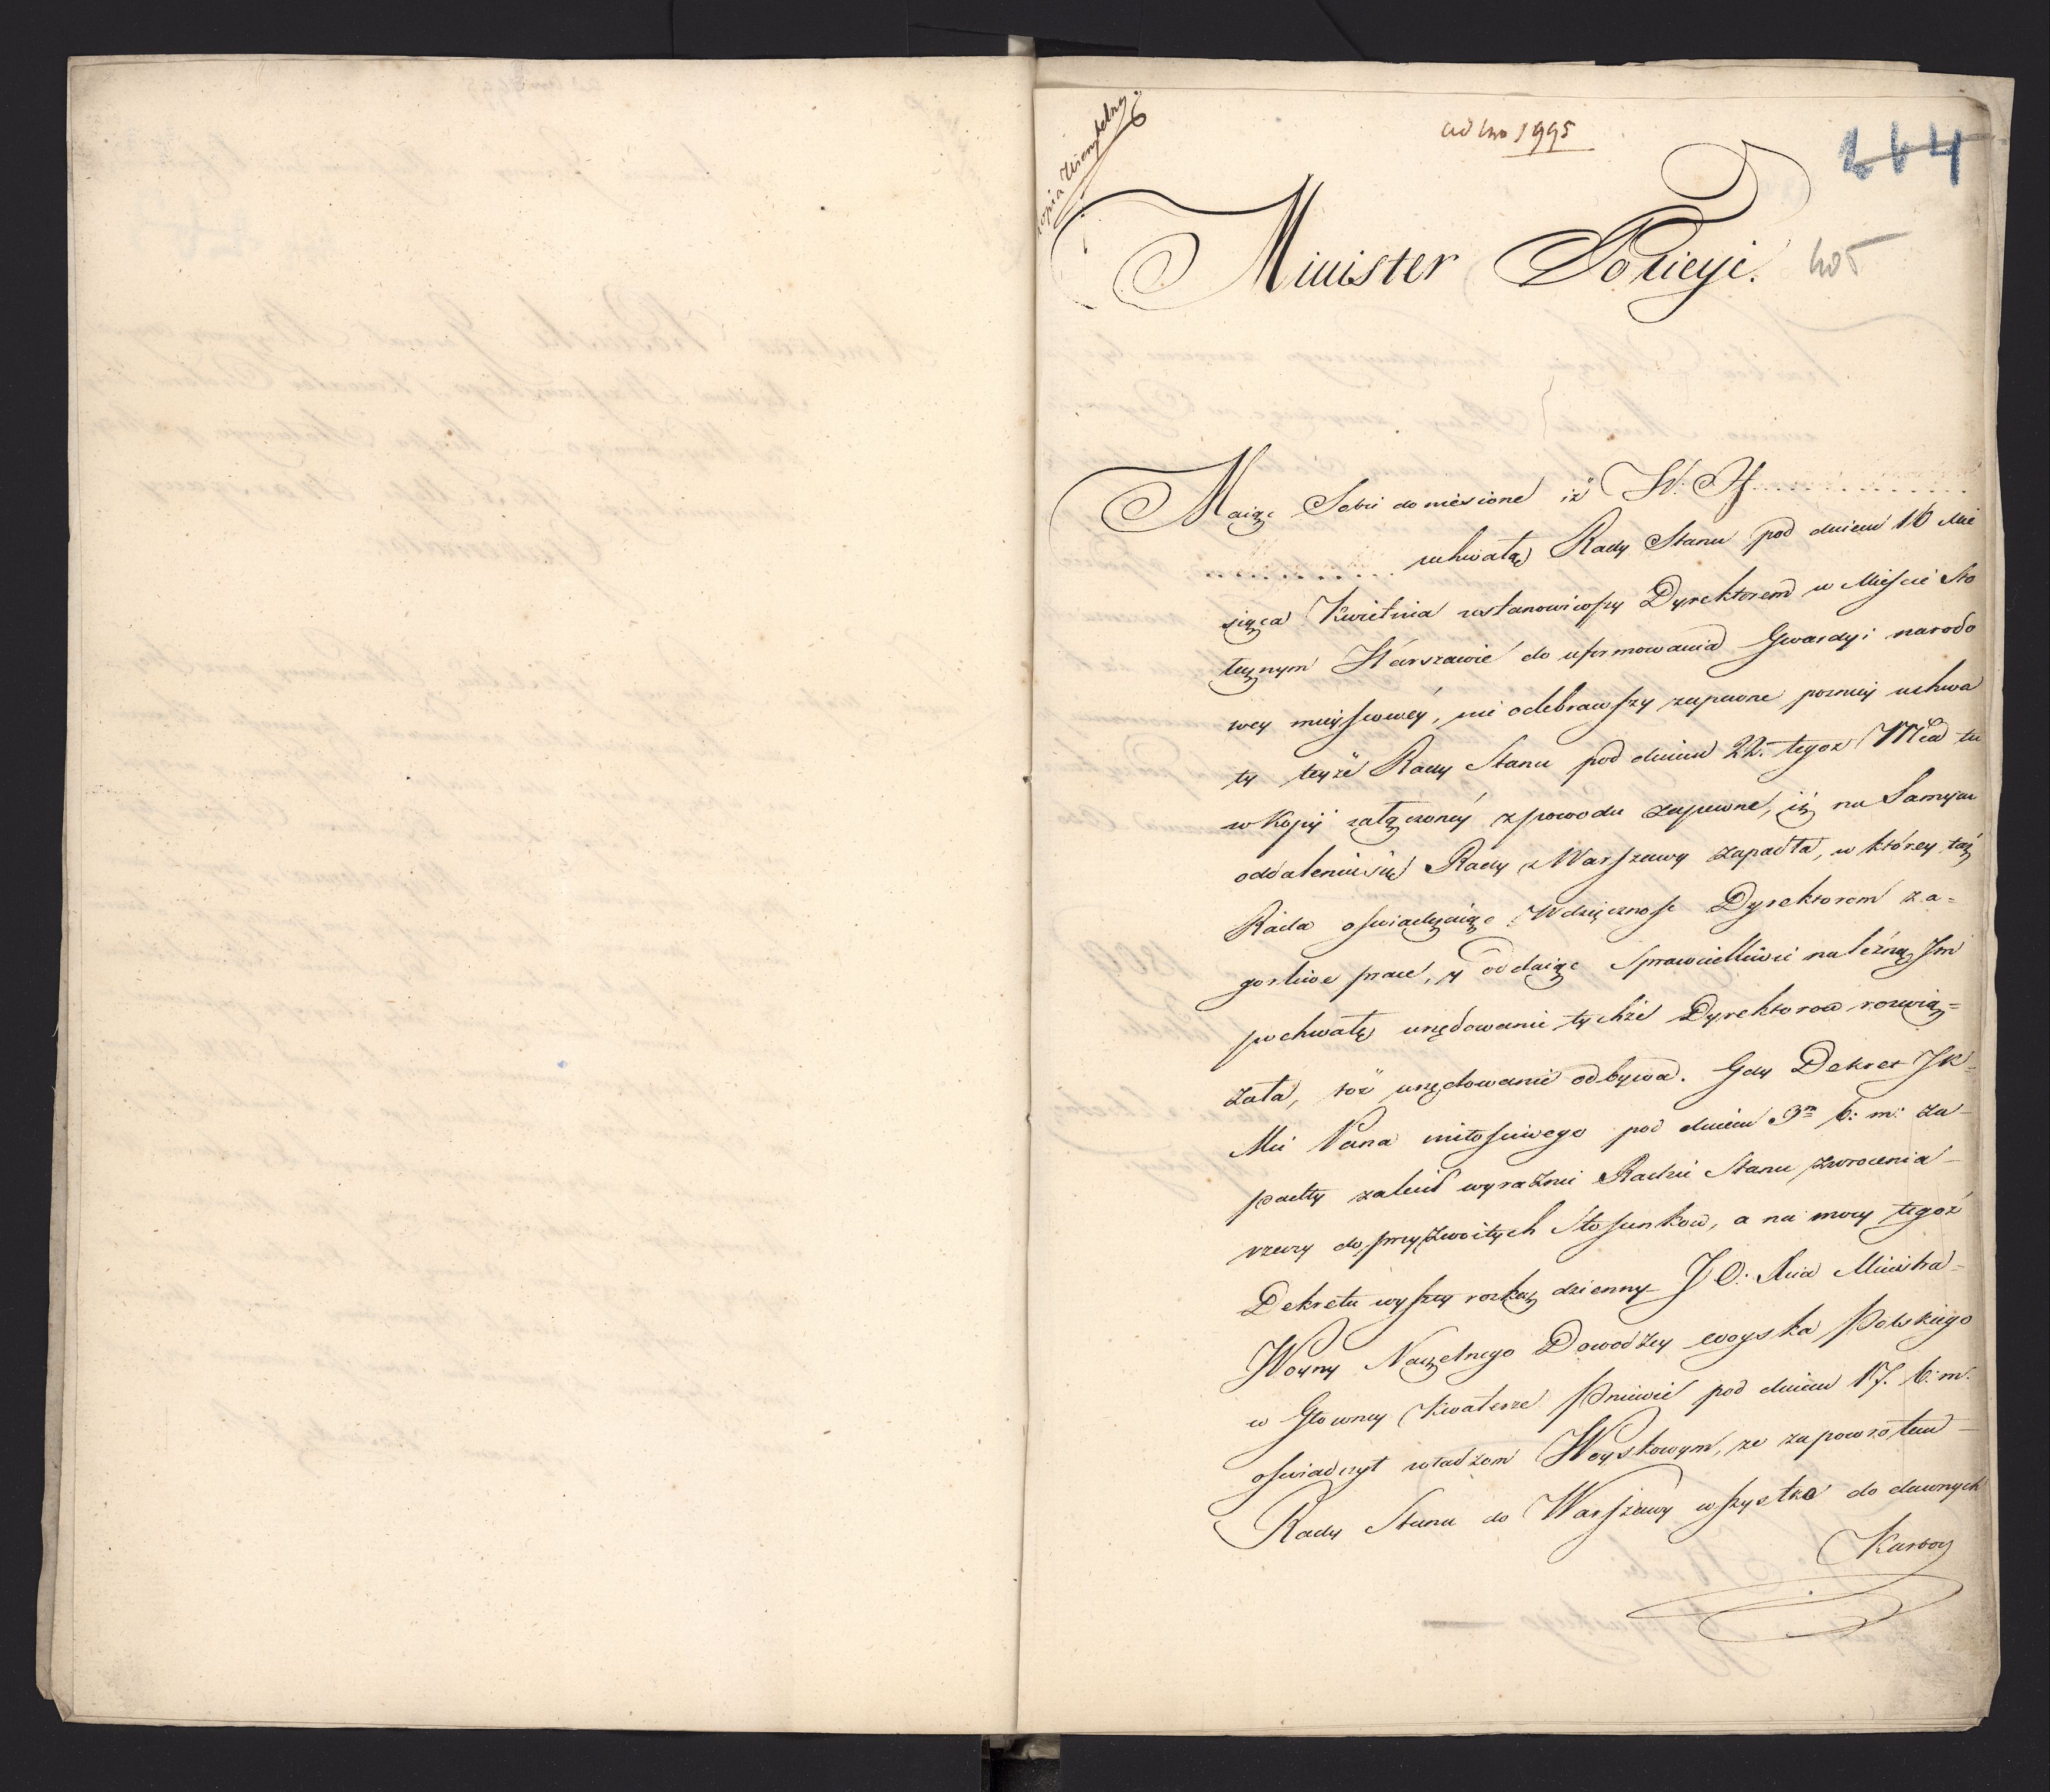 Kopia Wierzytelna.
ad Nro 1995
Minister Policyi.
405
Maiąc Sobie doniesione iż W. J. . . . . . . . . . . . .
. . . . . . . . . . . . uchwałą Rady Stanu pod dniem 16 Mie
siąca Kwietnia ustanowiwszy Dyrektorem w Mieście Sto
łecznym Warszawie do uformowania Gwardyi narodo
wey mieyscowéy, nie odebrawszy zapewne pozniey uchwa
ły teyże Rady Stanu pod dniem 22. tegoż Mca tu
w Kopij załączonéy z powodu zapewne, iż na Samym
oddaleniu się Rady z Warszawy zapadła, w którey taż
Rada oswiadczaiąc Wdzięcznosc Dyrektorom za=
gorliwe prace, y oddaiąc Sprawiedliwie należną Im
pochwałę urzędowanie tychże Dyrektorow rozwią=
zała, toż urzędowanie odbywa. Gdy Dekret JK=
Mci Pana miłosciwego pod dniem 9m b: m: za-
padły zalecił wyraznie Radzie Stanu zwrocenia-
rzeczy do przyzwoitych Stosunkow, a na mocy tegoż
Dekretu wyszły rozkaz dzienny J O. Xcia Ministra-
Woyny Naczelnego Dowodzcy woyska Polskiego
w Głowney Kwaterze Pniewie pod dniem 17. b: m.
oswiadczył władzom Woyskowym, ze za powrotem-
Rady Stanu do Warszawy wszystko do dawnych